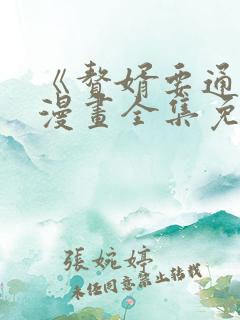 《贅婿要通
漫畫全集免
張婉婷
未经同意禁止转载